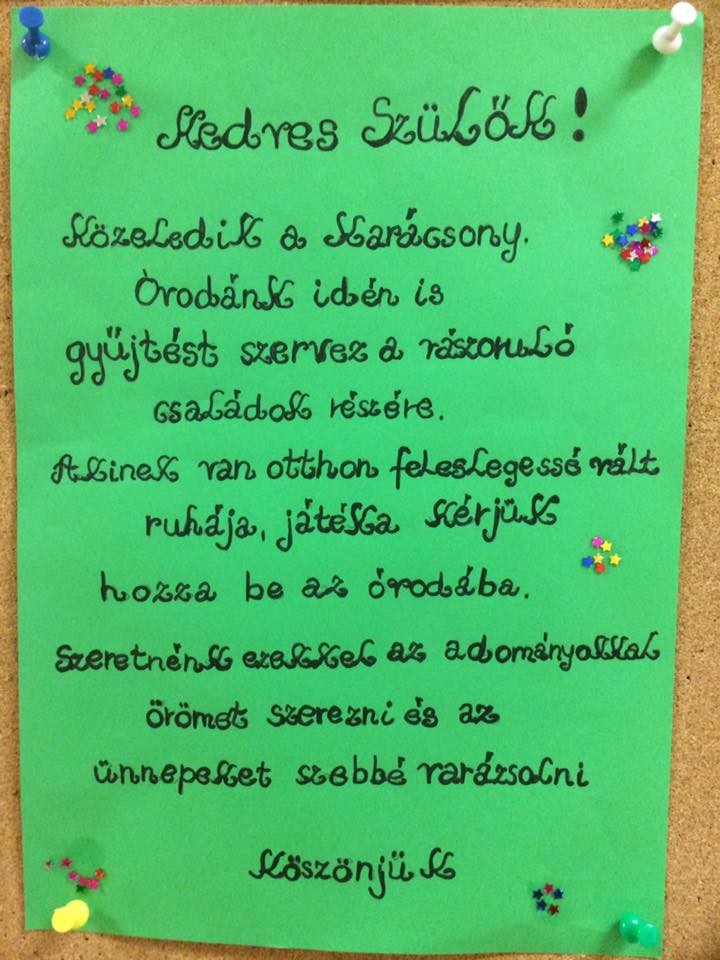 Kedves Szülők!
Közeledik a Karácsony.
Óvodánk idén is
gyűjtést szervez a rászoruló
családok részére.
Akinek van otthon feleslegessé vált
ruhája, játéka kérjük
hozza be az óvodába.
Szeretnénk ezekkel az adományokkal
örömet szerezni és az
ünnepeket szebbé varázsolni
Köszönjük